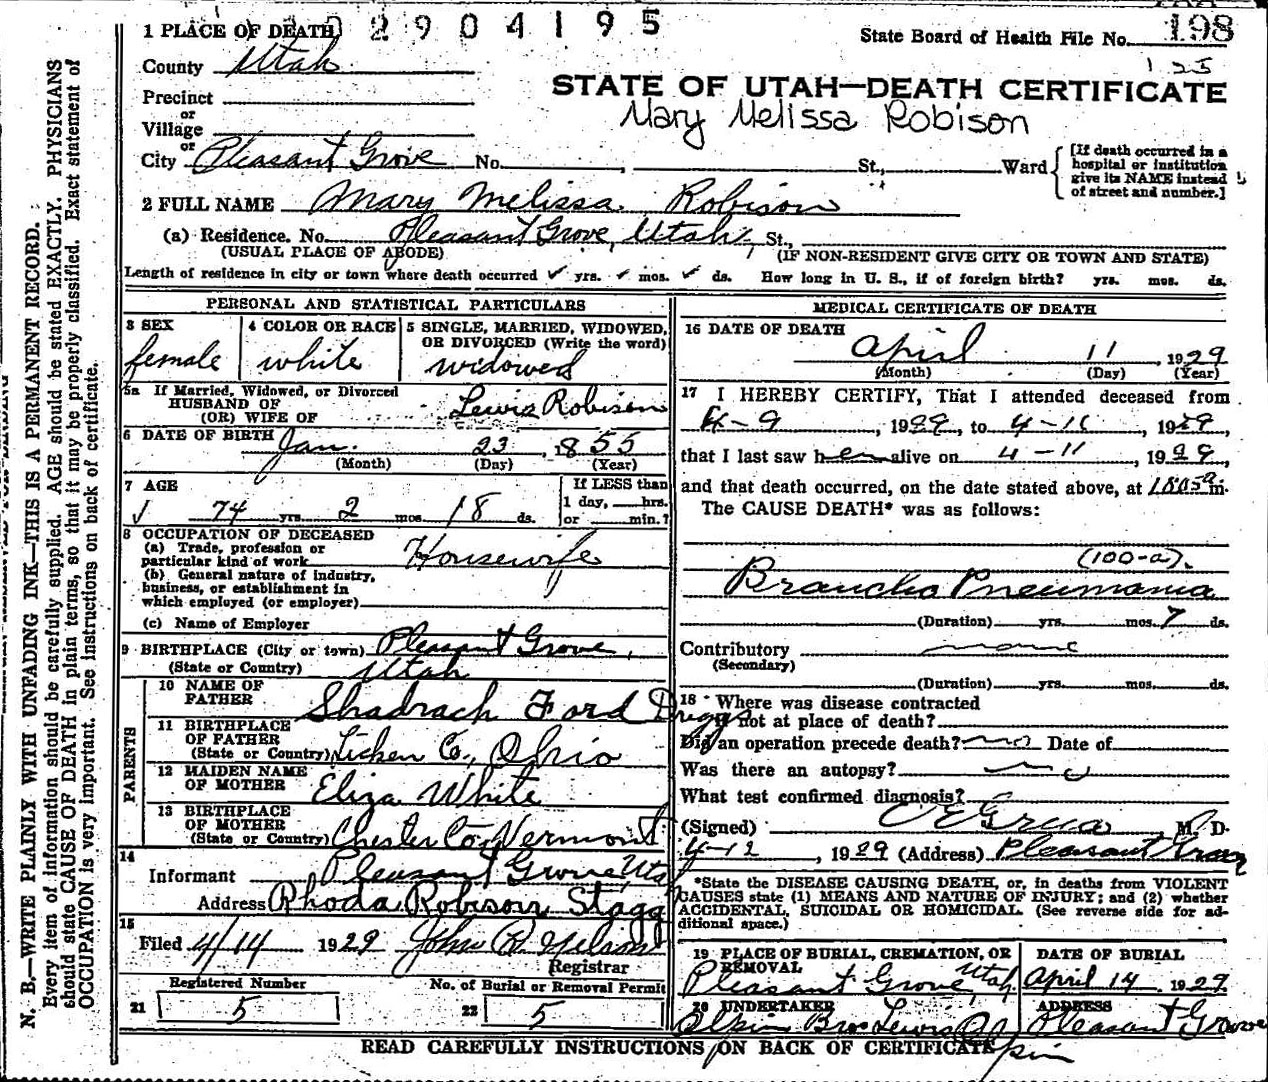 2904195
198
1 PLACE OF DEATH
State Board of Health File No.
125
County Utah
STATE OF UTAH—DEATH CERTIFICATE
Precinct
Mary Melissa Robison
or
Village
or
City Pleasant Grove No. , St., Ward
[If death occurred in a
hospital or institution
give its NAME instead
of street and number.]
2 FULL NAME Mary Melissa Robison
(a) Residence. No. Pleasant Grove, Utah, St.,
(USUAL PLACE OF ABODE) (IF NON-RESIDENT GIVE CITY OR TOWN AND STATE)
Length of residence in city or town where death occurred ✓ yrs. ✓ mos. ✓ ds. How long in U. S., if of foreign birth? yrs. mos. ds.
PERSONAL AND STATISTICAL PARTICULARS
3 SEX
female
4 COLOR OR RACE
white
5 SINGLE, MARRIED, WIDOWED,
OR DIVORCED (Write the word)
widowed
5a If Married, Widowed, or Divorced
HUSBAND OF
(OR) WIFE OF Lewis Robison
6 DATE OF BIRTH Jan. 23, 1855
(Month) (Day) (Year)
7 AGE
74 yrs. 2 mos. 18 ds.
If LESS than
1 day, hrs.
or min.?
8 OCCUPATION OF DECEASED
(a) Trade, profession or
particular kind of work Housewife
(b) General nature of industry,
business, or establishment in
which employed (or employer)
(c) Name of Employer
9 BIRTHPLACE (City or town) Pleasant Grove,
(State or Country) Utah
PARENTS
10 NAME OF
FATHER Shadrach Ford Driggs
11 BIRTHPLACE
OF FATHER
(State or Country) Licken Co., Ohio
12 MAIDEN NAME
OF MOTHER Eliza White
13 BIRTHPLACE
OF MOTHER
(State or Country) Chester Co. Vermont
14
Informant Pleasant Grove, Utah
Address Rhoda Robison Stagg
15
Filed 4/14 1929 John R Nelson
Registrar
Registered Number
21 5
No. of Burial or Removal Permit
22 5
MEDICAL CERTIFICATE OF DEATH
16 DATE OF DEATH
April 11, 1929
(Month) (Day) (Year)
17 I HEREBY CERTIFY, That I attended deceased from
4-9, 1929, to 4-11, 1929,
that I last saw her alive on 4-11, 1929,
and that death occurred, on the date stated above, at m.
The CAUSE DEATH* was as follows:
(100-a)
Broncho Pneumonia
(Duration) yrs. mos. 7 ds.
Contributory none
(Secondary)
(Duration) yrs. mos. ds.
18 Where was disease contracted
if not at place of death?
Did an operation precede death? no Date of
Was there an autopsy? no
What test confirmed diagnosis?
(Signed) Grua M. D.
4-12, 1929 (Address) Pleasant Grove
*State the DISEASE CAUSING DEATH, or, in deaths from VIOLENT
CAUSES state (1) MEANS AND NATURE OF INJURY; and (2) whether
ACCIDENTAL, SUICIDAL OR HOMICIDAL. (See reverse side for ad-
ditional space.)
19 PLACE OF BURIAL, CREMATION, OR
REMOVAL
Pleasant Grove, Utah
DATE OF BURIAL
April 14, 1929
20 UNDERTAKER
Olpin Bros Lewis Olpin
ADDRESS
Pleasant Grove
READ CAREFULLY INSTRUCTIONS ON BACK OF CERTIFICATE
N. B.—WRITE PLAINLY WITH UNFADING INK—THIS IS A PERMANENT RECORD.
Every item of information should be carefully supplied. AGE should be stated EXACTLY. PHYSICIANS
should state CAUSE OF DEATH in plain terms, so that it may be properly classified. Exact statement of
OCCUPATION is very important. See instructions on back of certificate.